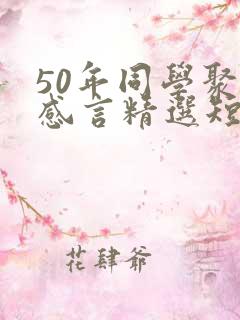 50年同學聚
感言精選短
花肆爺